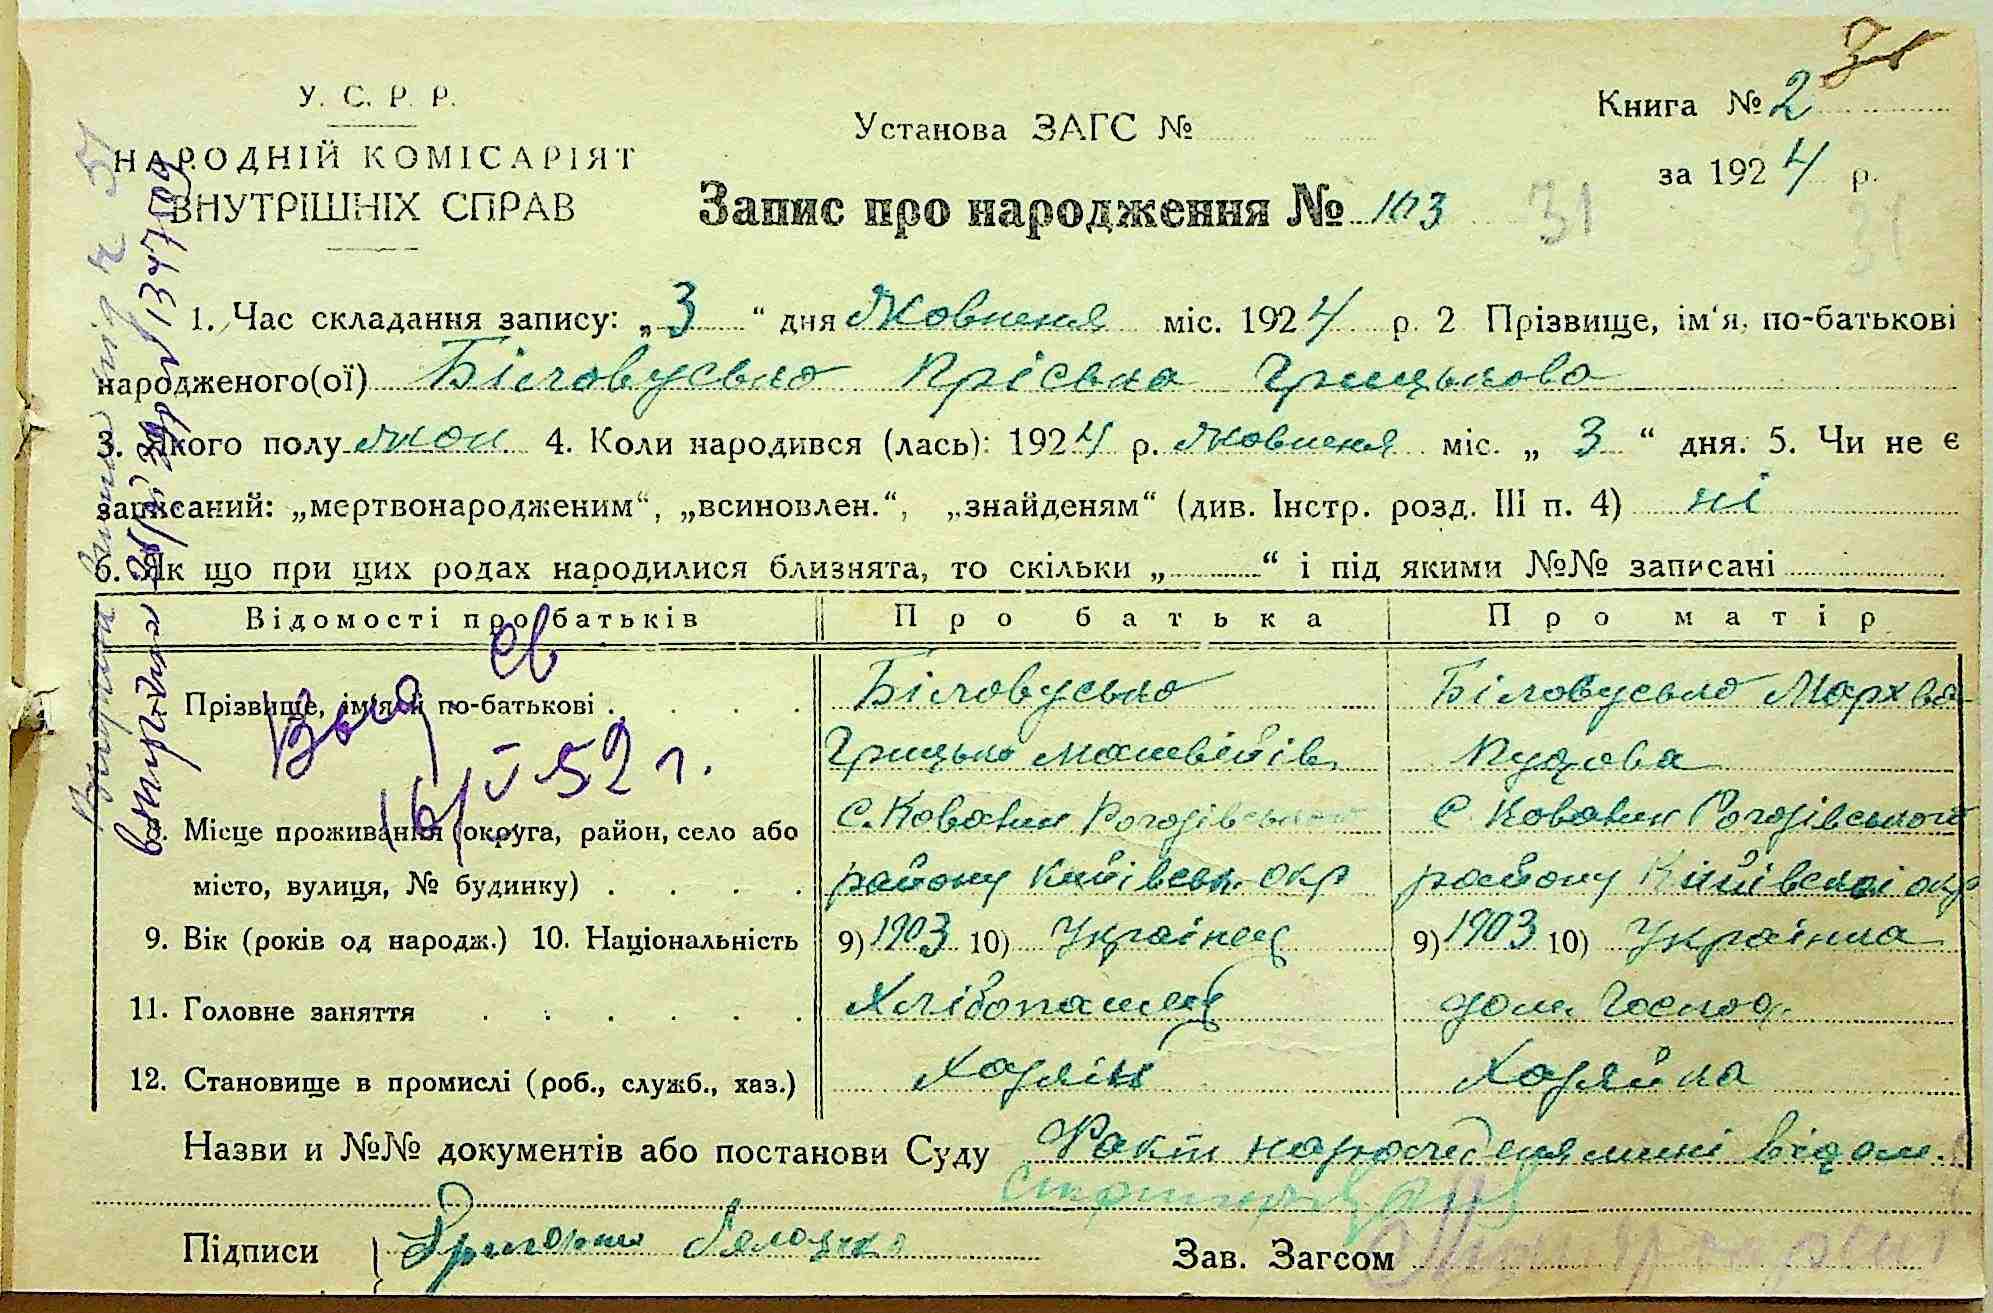 У. С. Р. Р.
НАРОДНІЙ КОМІСАРІЯТ
ВНУТРІШНІХ СПРАВ
Установа ЗАГС №
Книга № 2
за 1924 р.
31
Запис про народження № 103
31
31
1. Час складання запису: „3“ дня Жовтня міс. 1924 р. 2 Прізвище, ім'я, по-батькові
народженого(ої) Біловусько Пріська Грицькова
3. Якого полу жон 4. Коли народився (лась): 1924 р. Жовтня міс. „3“ дня. 5. Чи не є
записаний: „мертвонародженим“, „всиновлен.“, „знайденям“ (див. Інстр. розд. III п. 4) ні
6. Як що при цих родах народилися близнята, то скільки „ “ і під якими №№ записані
Відомості про батьків Про батька Про матір
Прізвище, ім'я й по-батькові Біловусько Біловусько Мархва
Грицько Матвійів
8. Місце проживання (округа, район, село або С. Ковалин Рогозівського С. Ковалин Рогозівського
місто, вулиця, № будинку) району Київськ. окр району Київської окр
9. Вік (років од народж.) 10. Національність 9) 1903 10) Українец 9) 1903 10) Українка
11. Головне заняття Хлібопашец дом. Господ.
12. Становище в промислі (роб., служб., хаз.) Хазяін Хазяйка
16/V 52 г.
Назви и №№ документів або постанови Суду Факт народженя мині відом.
Підписи Зав. Загсом